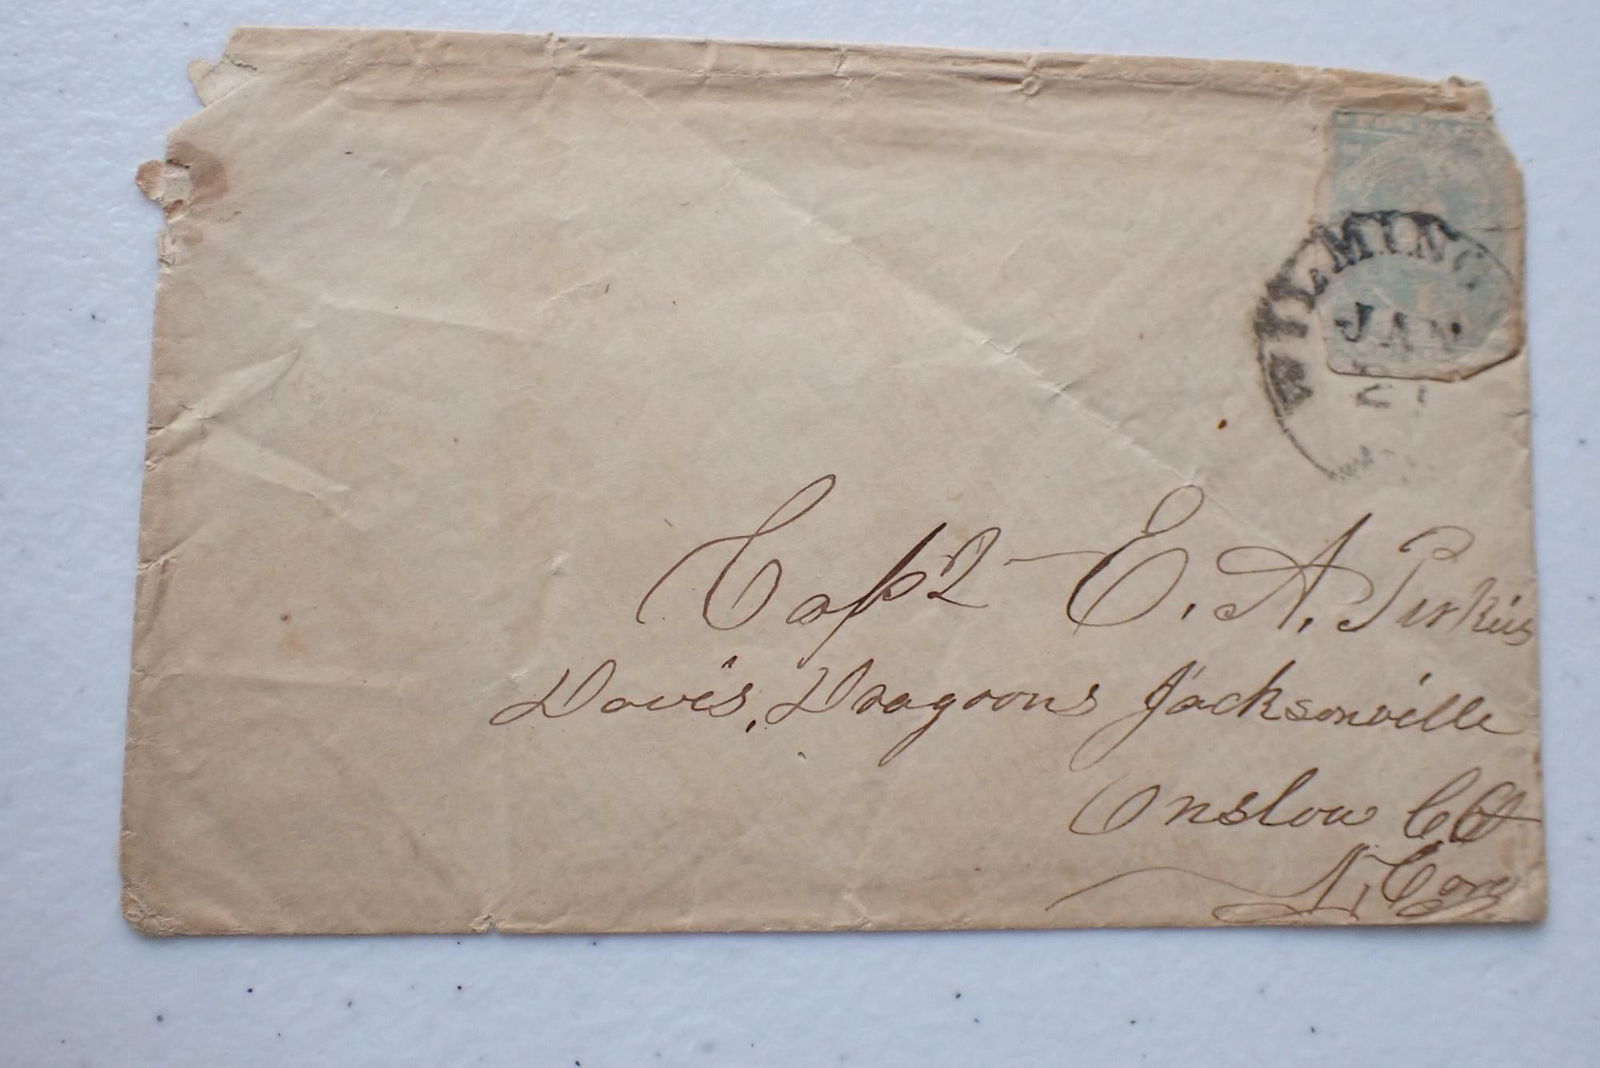 WILMING
JAN
Capt E. A. Perkins
Davis, Dragoons Jacksonville
Onslow Co
N, Caro